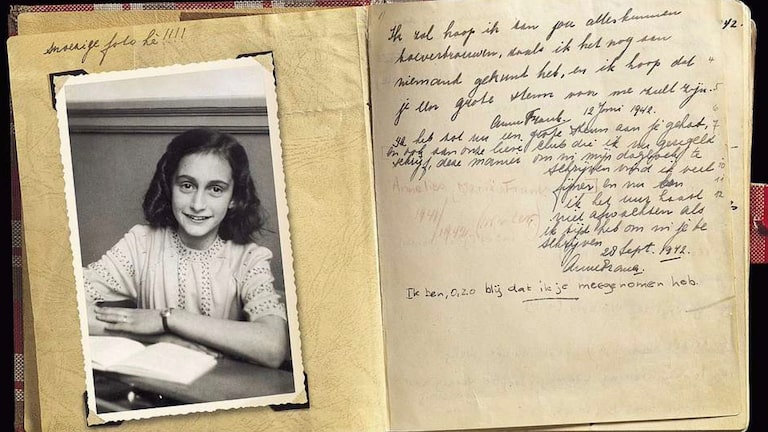 Snoezige foto hè!!!!
42.
Ik zal hoop ik aan jou alles kunnen
toevertrouwen, zoals ik het nog aan
niemand gekund heb, en ik hoop dat
je een grote steun voor me zult zijn.
Anne Frank. 12 Juni 1942.
Ik heb tot nu een grote steun aan je gehad,
en ook aan onze lieve club die ik nu geregeld
schrijf, deze manier om in mijn dagboek te
schrijven vind ik veel
fijner en nu kan
ik het uur haast
niet afwachten als
ik tijd heb om in je te
schrijven.
28 Sept. 1942.
Anne Frank.
Ik ben, o, zo blij dat ik je meegenomen heb.